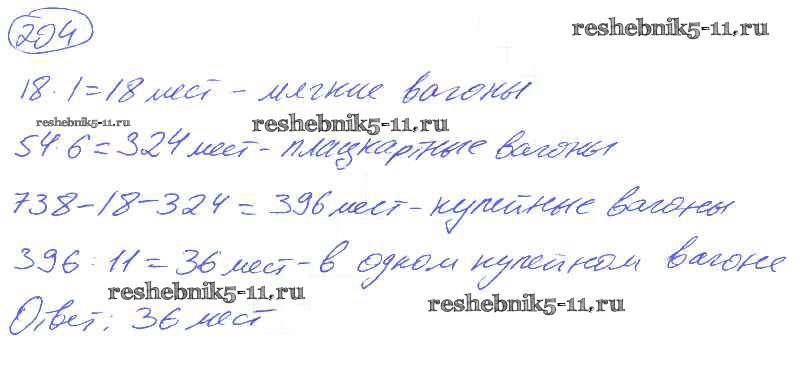 204
reshebnik5-11.ru
18·1=18 мест - мягкие вагоны
reshebnik5-11.ru
reshebnik5-11.ru
54·6=324 мест - плацкартные вагоны
738-18-324=396 мест - купейные вагоны
396:11=36 мест - в одном купейном вагоне
reshebnik5-11.ru
reshebnik5-11.ru
Ответ: 36 мест